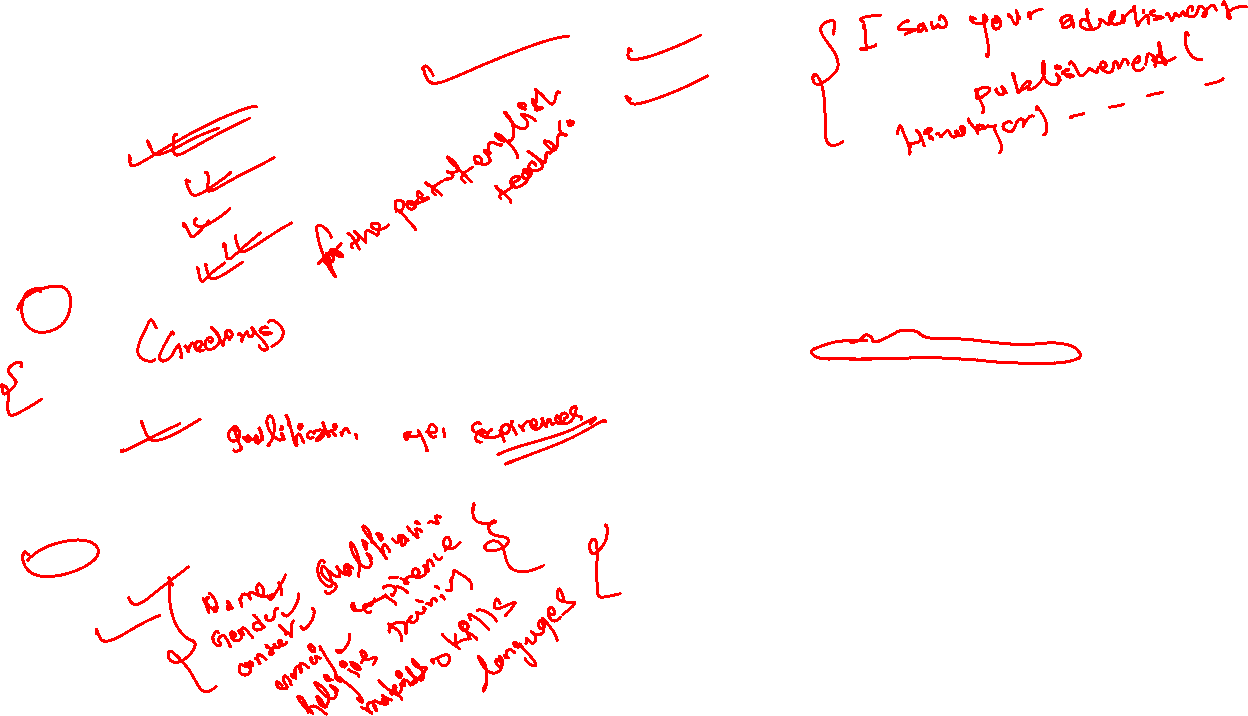 I saw your advertisment
publishement (
Himalayan) - - - -
for the post of english
teacher.
(Greetings)
Qualification, age, Expirences
Name,
Gender,
contact,
email,
religions
Qualification
expirence
Training
skills
languages